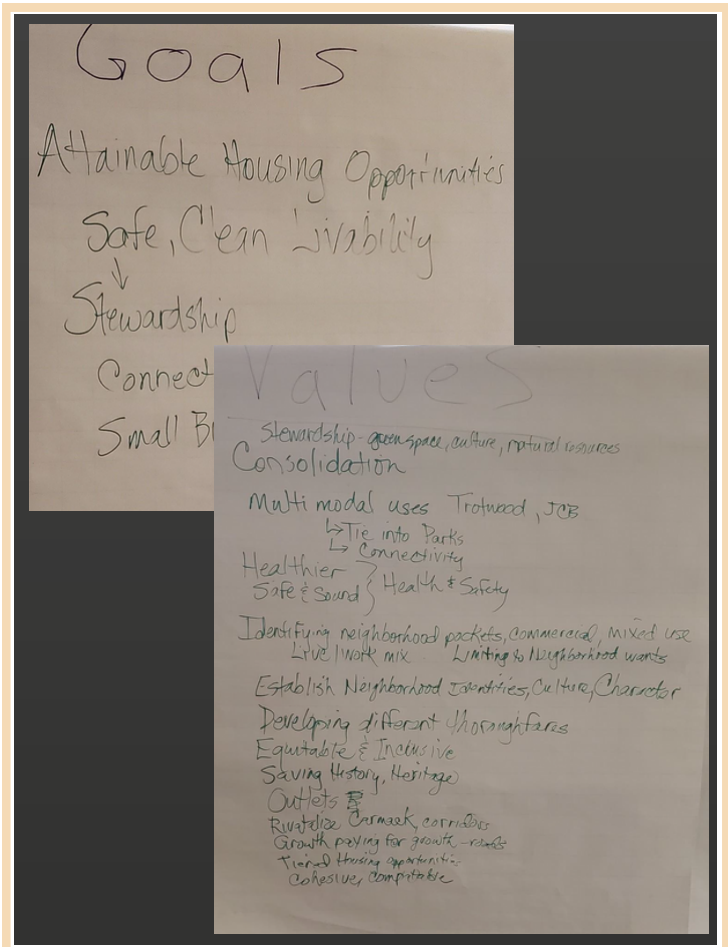 Goals
Attainable Housing Opportunities
Safe, Clean Livability
↓
Stewardship
Connect
Small B
Values
Stewardship - green space, culture, natural resources
Consolidation
Multi modal uses Trotwood, JCB
↳ Tie into Parks
↳ Connectivity
Healthier
Safe & Sound } Health & Safety
Identifying neighborhood pockets, commercial, mixed use
Live/Work mix Limiting to Neighborhood wants
Establish Neighborhood Identities, Culture, Character
Developing different thoroughfares
Equitable & Inclusive
Saving History, Heritage
Outlets
Carmack, corridors
Growth paying for growth - roads
Tiered Housing opportunities
Cohesive, compatable